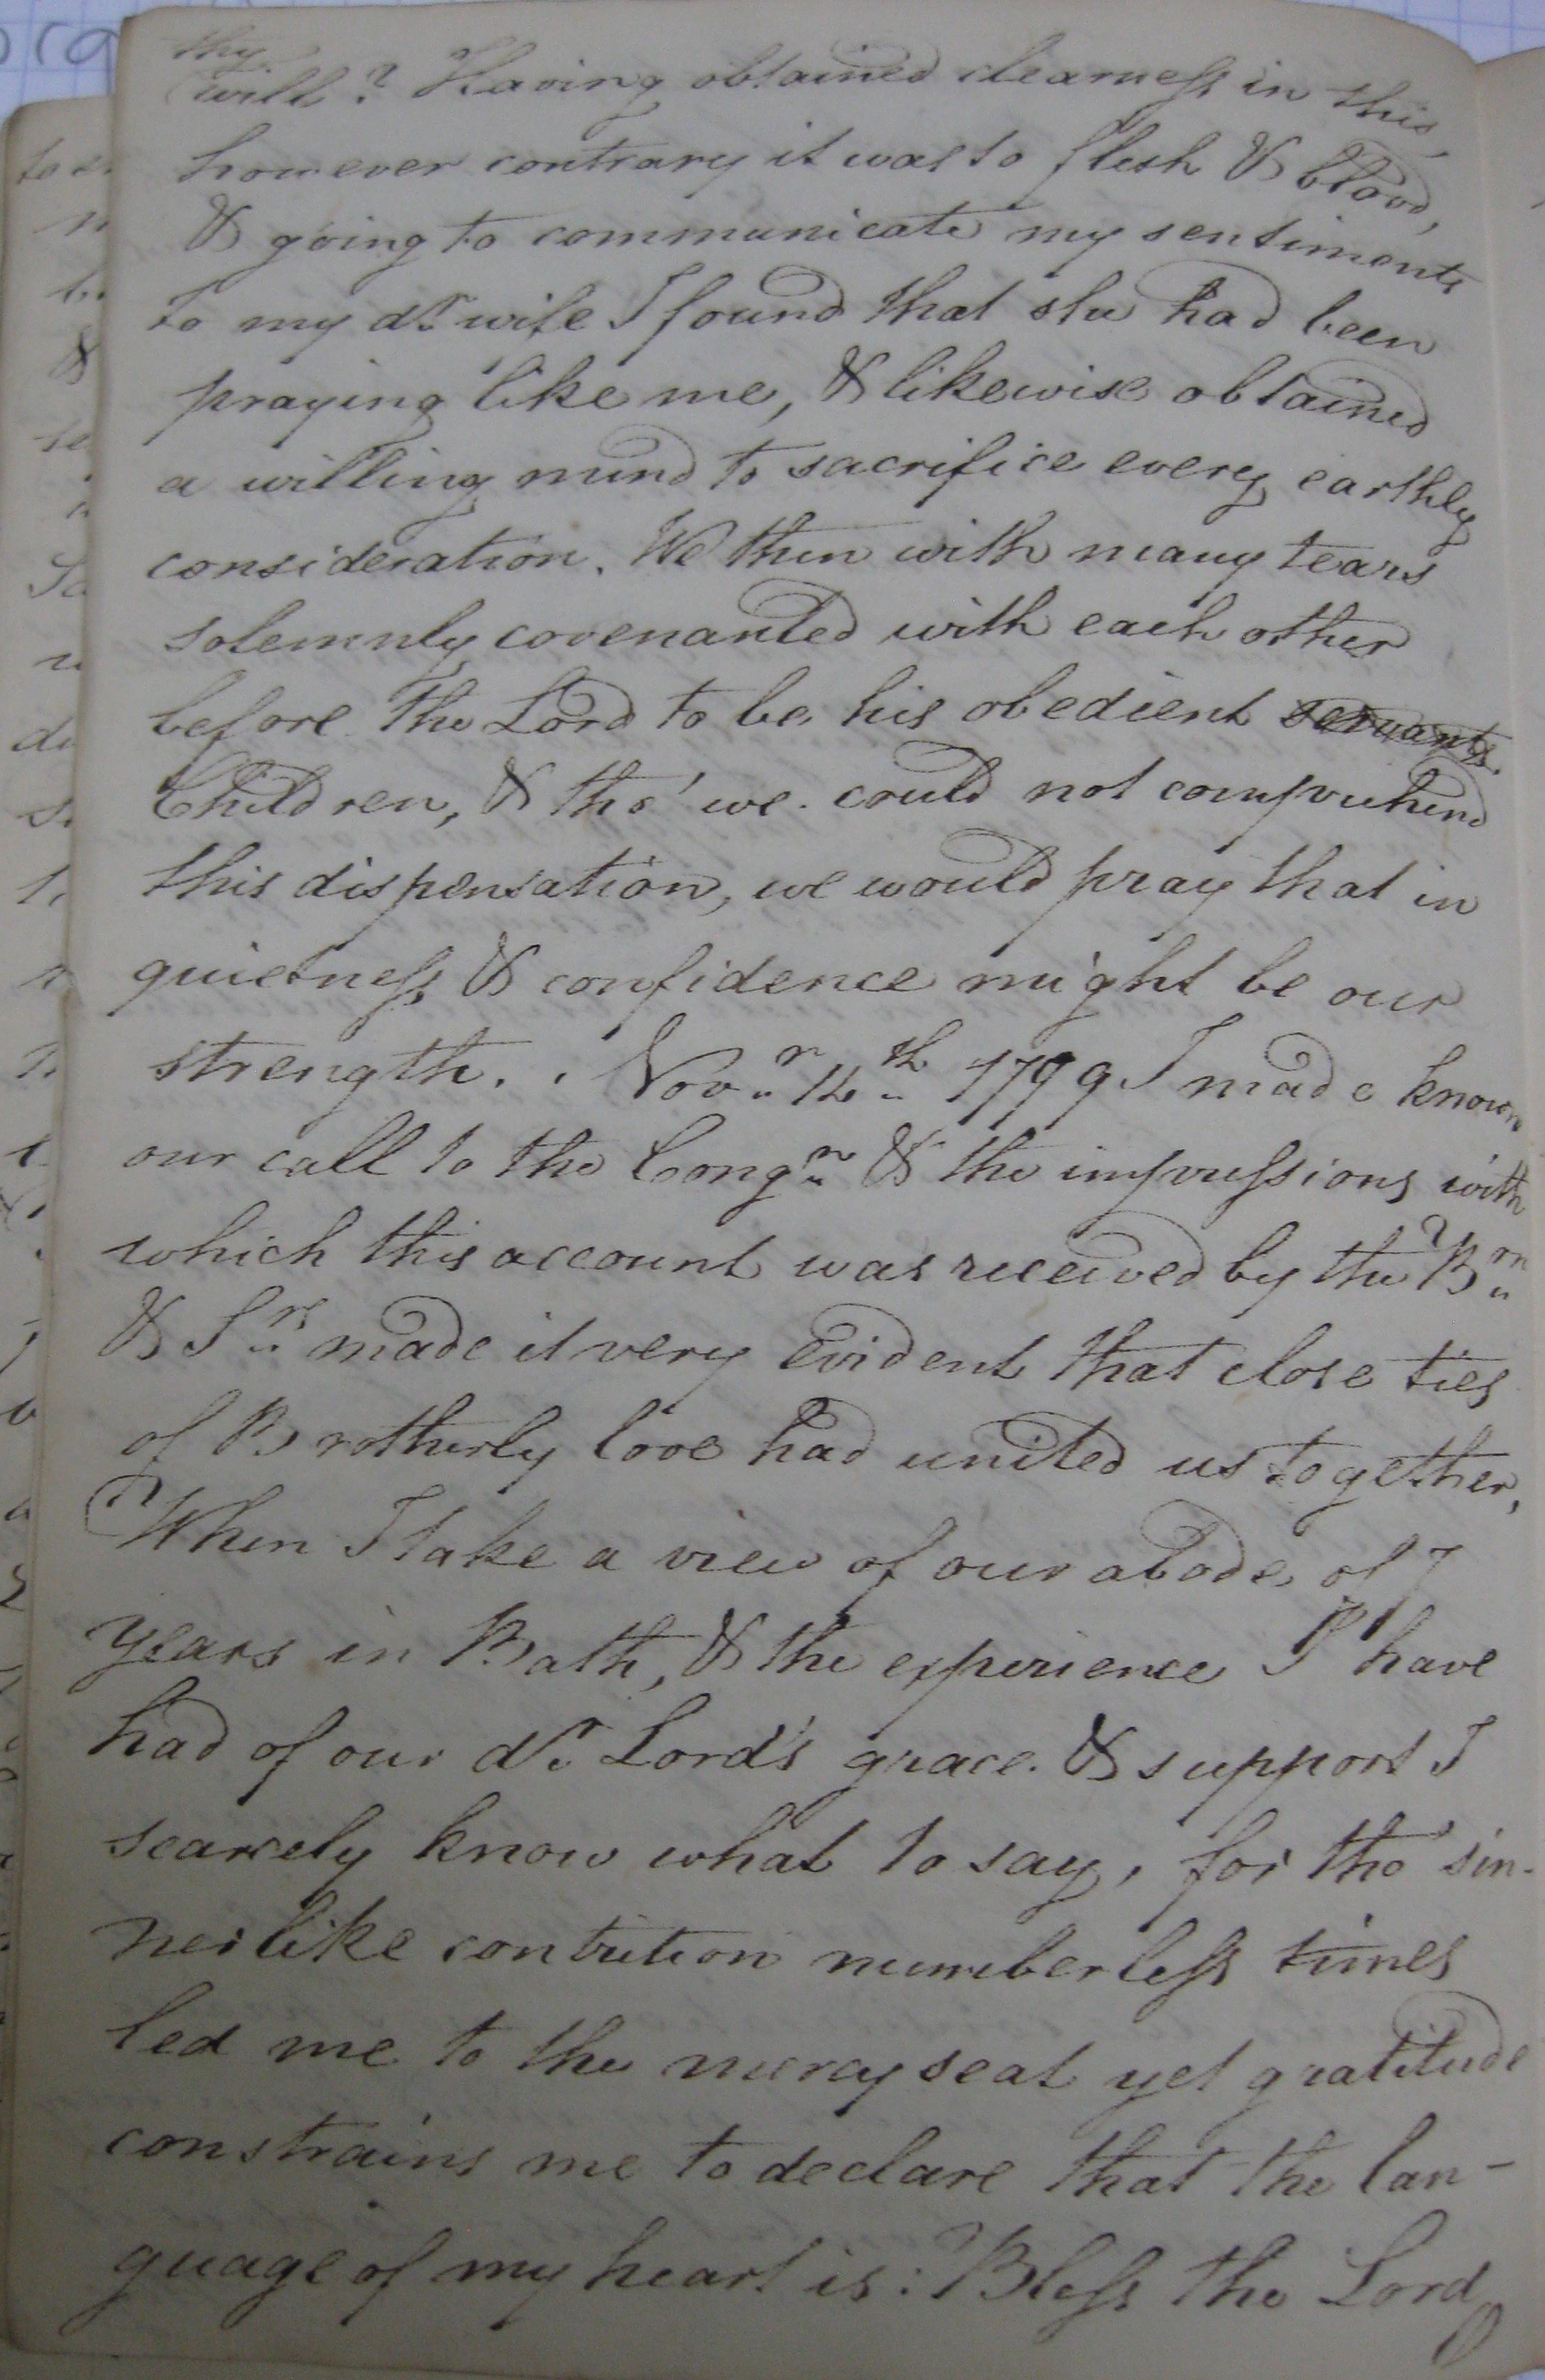 thy
will? Having obtained clearness in this,
however contrary it was to flesh & blood,
& going to communicate my sentiments
to my dr. wife I found that she had been
praying like me, & likewise obtained
a willing mind to sacrifice every earthly
consideration. We then with many tears
solemnly covenanted with each other
before the Lord to be his obedient servants.
Children, & tho' we could not comprehend
this dispensation, we would pray that in
quietness & confidence might be our
strength. Novr. 14th 1799 I made known
our call to the Congn. & the impressions with
which this account was received by the Brn.
& Srs. made it very evident that close ties
of Brotherly love had united us together,
When I take a view of our abode of 7
years in Bath, & the experience I have
had of our dr. Lord's grace & support I
scarcely know what to say, for tho' sin-
nerlike contrition numberless times
led me to the mercy seat yet gratitude
constrains me to declare that the lan-
guage of my heart is: Bless the Lord